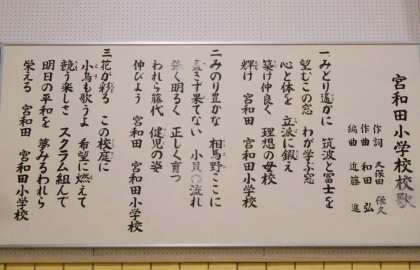 宮和田小学校校歌
作詞 久保田 保久
作曲 和田 弘
編曲 近藤 進
一 みどり遥かに 筑波と富士を
望むこの窓 わが学ぶ窓
心と体を 立派に鍛え
築け仲良く 理想の母校
輝け 宮和田 宮和田小学校
二 みのり豊かな 相馬野ここに
尽きず果てない 小貝の流れ
強く明るく 正しく育つ
われら藤代 健児の姿
伸びよう 宮和田 宮和田小学校
三 花が彩る この校庭に
小鳥も歌うよ 希望に燃えて
競う楽しさ スクラム組んで
明日の平和を 夢みるわれら
栄える 宮和田 宮和田小学校